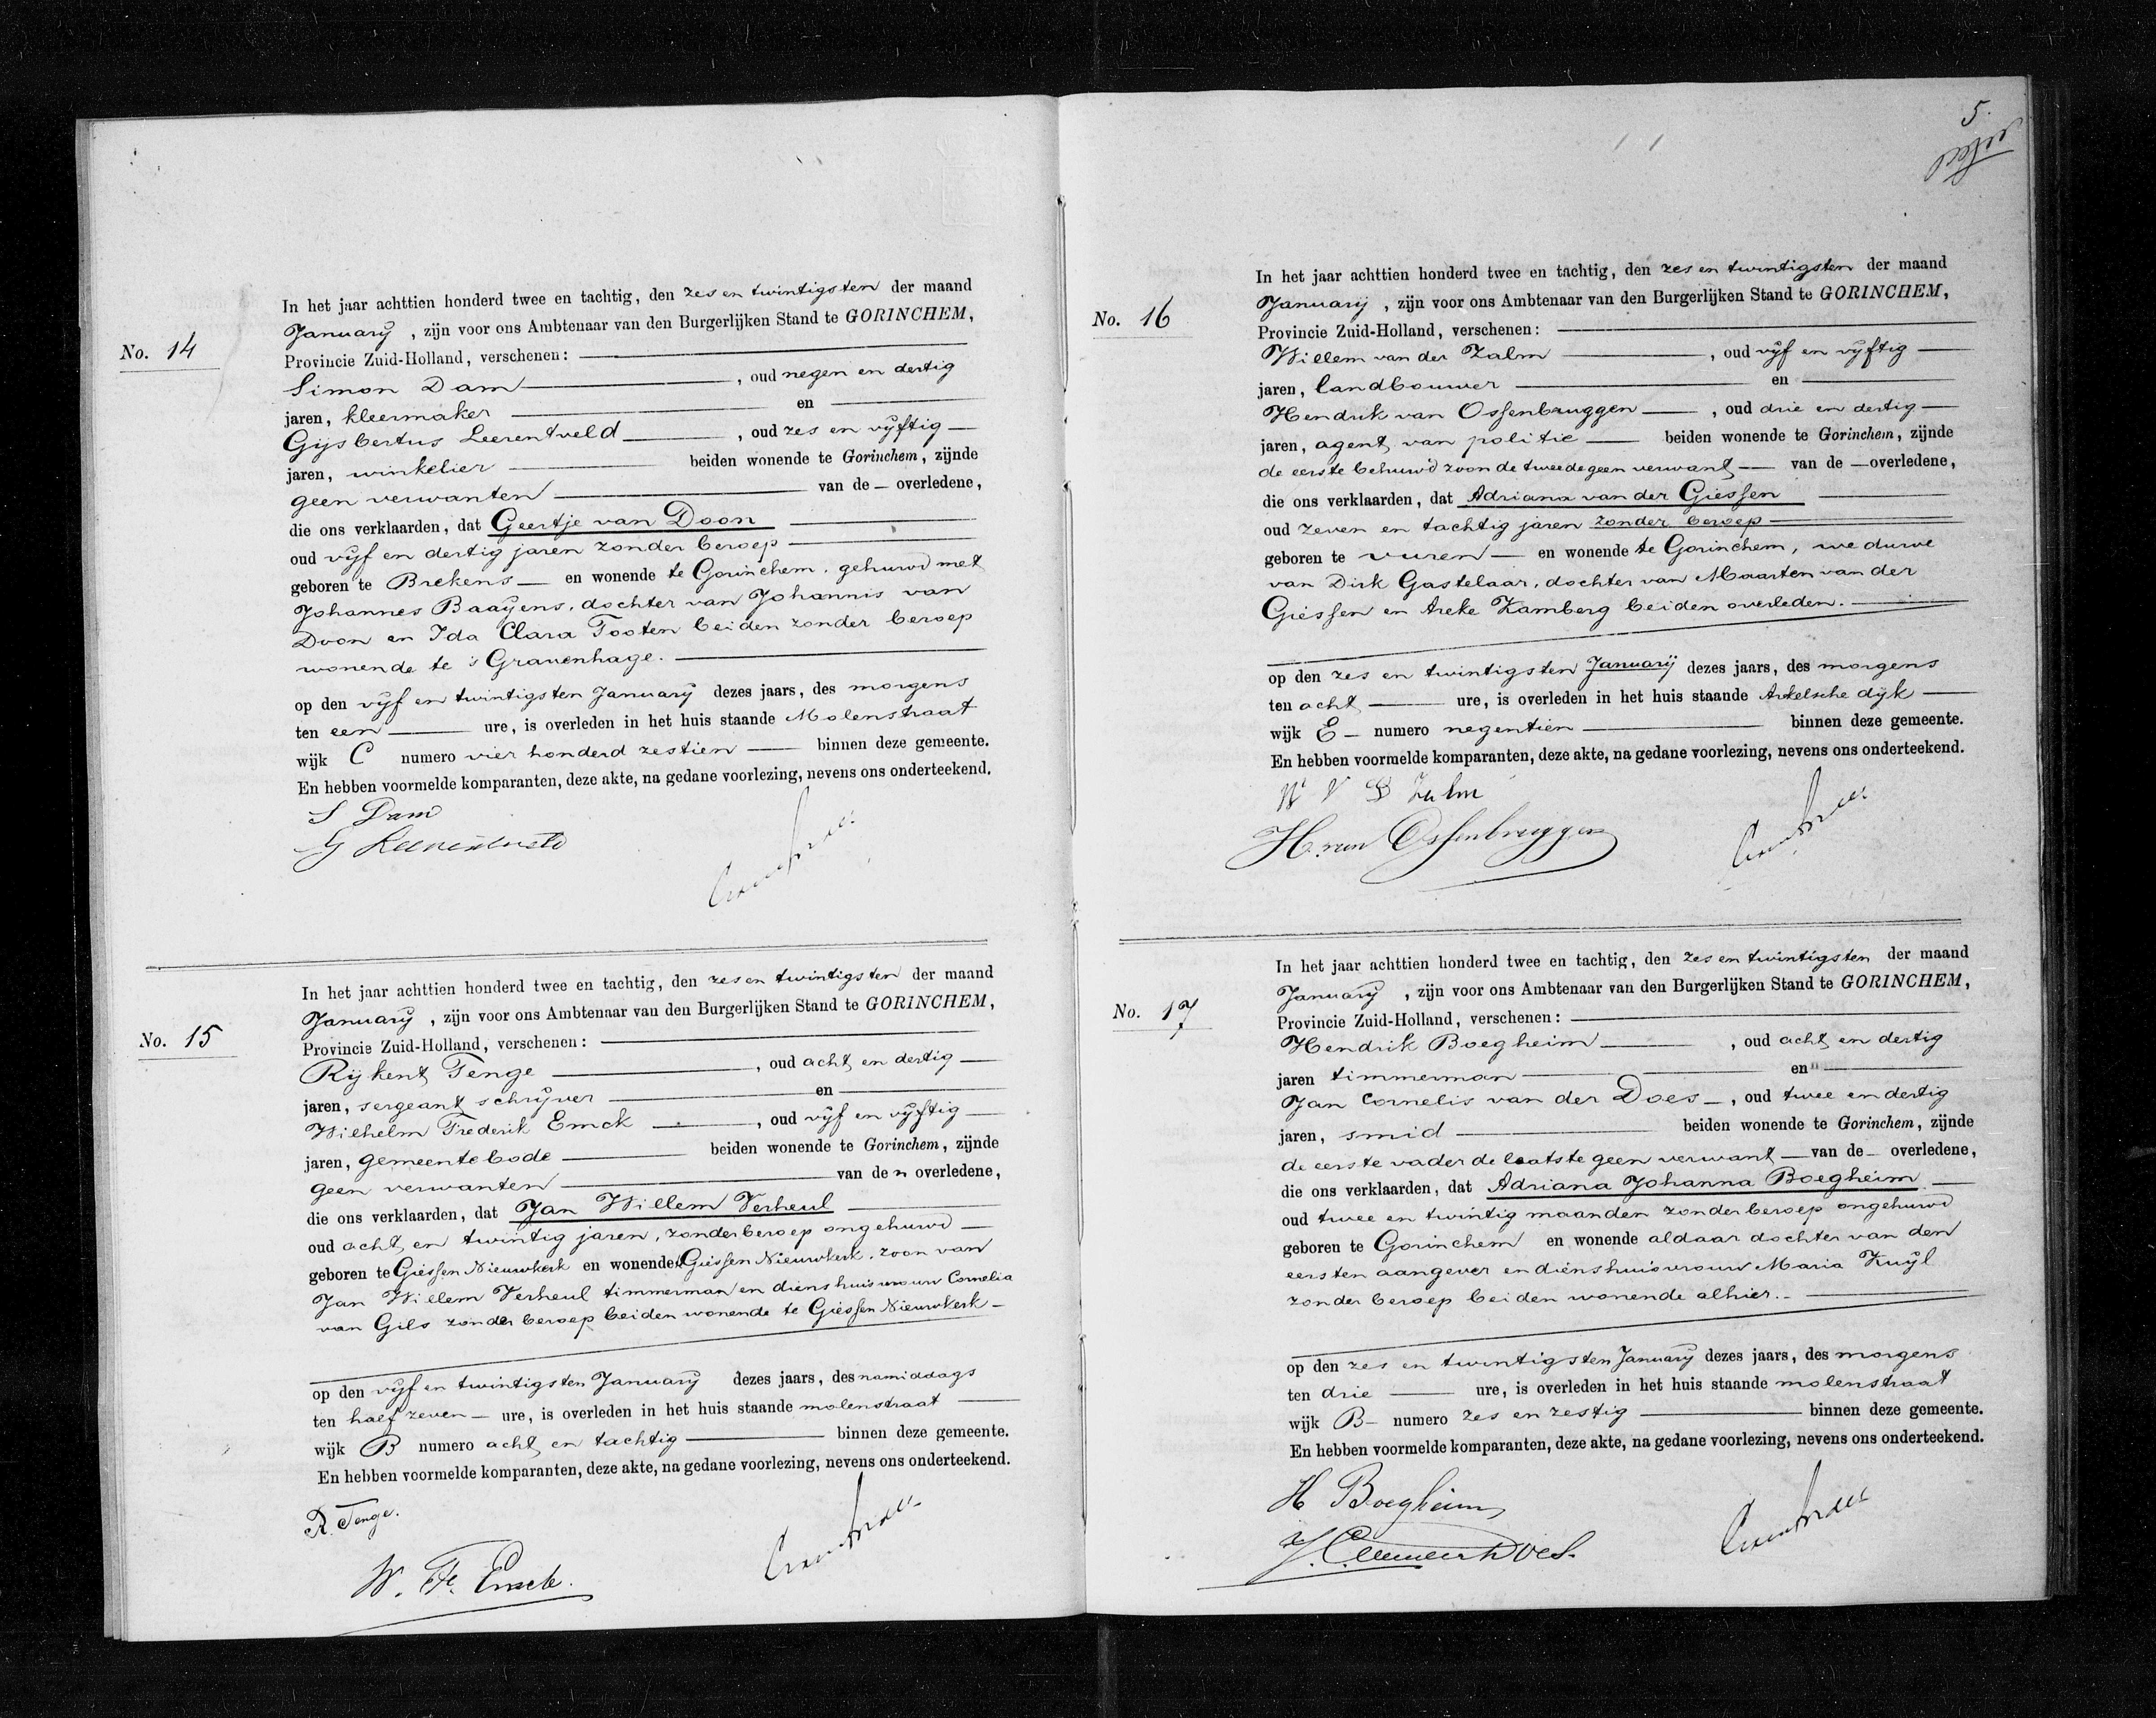 No. 14
In het jaar achttien honderd twee en tachtig, den zes en twintigsten der maand
January, zijn voor ons Ambtenaar van den Burgerlijken Stand te GORINCHEM,
Provincie Zuid-Holland, verschenen:
Simon Dam, oud negen en dertig
jaren, kleermaker en
Gijsbertus Leerentveld, oud zes en vyftig
jaren, winkelier beiden wonende te Gorinchem, zijnde
geen verwanten van de overledene,
die ons verklaarden, dat Geertje van Doon
oud vyf en dertig jaren zonder beroep
geboren te Brekens en wonende te Gorinchem, gehuwd met
Johannes Baayens, dochter van Johannis van
Doon en Ida Clara Tooten beiden zonder beroep
wonende te 's Gravenhage.
op den vyf en twintigsten January dezes jaars, des morgens
ten een ure, is overleden in het huis staande Molenstraat
wijk C numero vier honderd zestien binnen deze gemeente.
En hebben voormelde komparanten, deze akte, na gedane voorlezing, nevens ons onderteekend.
S Dam
G Leerentveld
No. 15
In het jaar achttien honderd twee en tachtig, den zes en twintigsten der maand
January, zijn voor ons Ambtenaar van den Burgerlijken Stand te GORINCHEM,
Provincie Zuid-Holland, verschenen:
Rijkent Tenge, oud acht en dertig
jaren, sergeant schryver en
Wilhelm Frederik Emck, oud vyf en vyftig
jaren, gemeentebode beiden wonende te Gorinchem, zijnde
geen verwanten van den overledene,
die ons verklaarden, dat Jan Willem Verheul
oud acht en twintig jaren, zonder beroep ongehuwd
geboren te Giessen Nieuwkerk en wonende te Giessen Nieuwkerk, zoon van
Jan Willem Verheul timmerman en diens huisvrouw Cornelia
van Gils zonder beroep beiden wonende te Giessen Nieuwkerk
op den vyf en twintigsten January dezes jaars, des namiddags
ten half zeven ure, is overleden in het huis staande molenstraat
wijk B numero acht en tachtig binnen deze gemeente.
En hebben voormelde komparanten, deze akte, na gedane voorlezing, nevens ons onderteekend.
R. Tenge.
W. Fr. Emck.
5.
No. 16
In het jaar achttien honderd twee en tachtig, den zes en twintigsten der maand
January, zijn voor ons Ambtenaar van den Burgerlijken Stand te GORINCHEM,
Provincie Zuid-Holland, verschenen:
Willem van der Zalm, oud vyf en vyftig
jaren, landbouwer en
Hendrik van Ossenbruggen, oud drie en dertig
jaren, agent van politie beiden wonende te Gorinchem, zijnde
de eerste behuwd zoon de tweede geen verwant van de overledene,
die ons verklaarden, dat Adriana van der Giessen
oud zeven en tachtig jaren zonder beroep
geboren te vuren en wonende te Gorinchem, weduwe
van Dirk Gastelaar, dochter van Maarten van der
Giessen en Areke Kamberg beiden overleden.
op den zes en twintigsten January dezes jaars, des morgens
ten acht ure, is overleden in het huis staande Arkelsche dyk
wijk E numero negentien binnen deze gemeente.
En hebben voormelde komparanten, deze akte, na gedane voorlezing, nevens ons onderteekend.
W V D Zalm
H. van Ossenbruggen
No. 17
In het jaar achttien honderd twee en tachtig, den zes en twintigsten der maand
January, zijn voor ons Ambtenaar van den Burgerlijken Stand te GORINCHEM,
Provincie Zuid-Holland, verschenen:
Hendrik Boegheim, oud acht en dertig
jaren timmerman en
Jan Cornelis van der Does, oud twee en dertig
jaren, smid beiden wonende te Gorinchem, zijnde
de eerste vader de laatste geen verwant van de overledene,
die ons verklaarden, dat Adriana Johanna Boegheim
oud twee en twintig maanden zonder beroep ongehuwd
geboren te Gorinchem en wonende aldaar dochter van den
eersten aangever en diens huisvrouw Maria Kuyl
zonder beroep beiden wonende alhier.
op den zes en twintigsten January dezes jaars, des morgens
ten drie ure, is overleden in het huis staande molenstraat
wijk B numero zes en zestig binnen deze gemeente.
En hebben voormelde komparanten, deze akte, na gedane voorlezing, nevens ons onderteekend.
H Boegheim